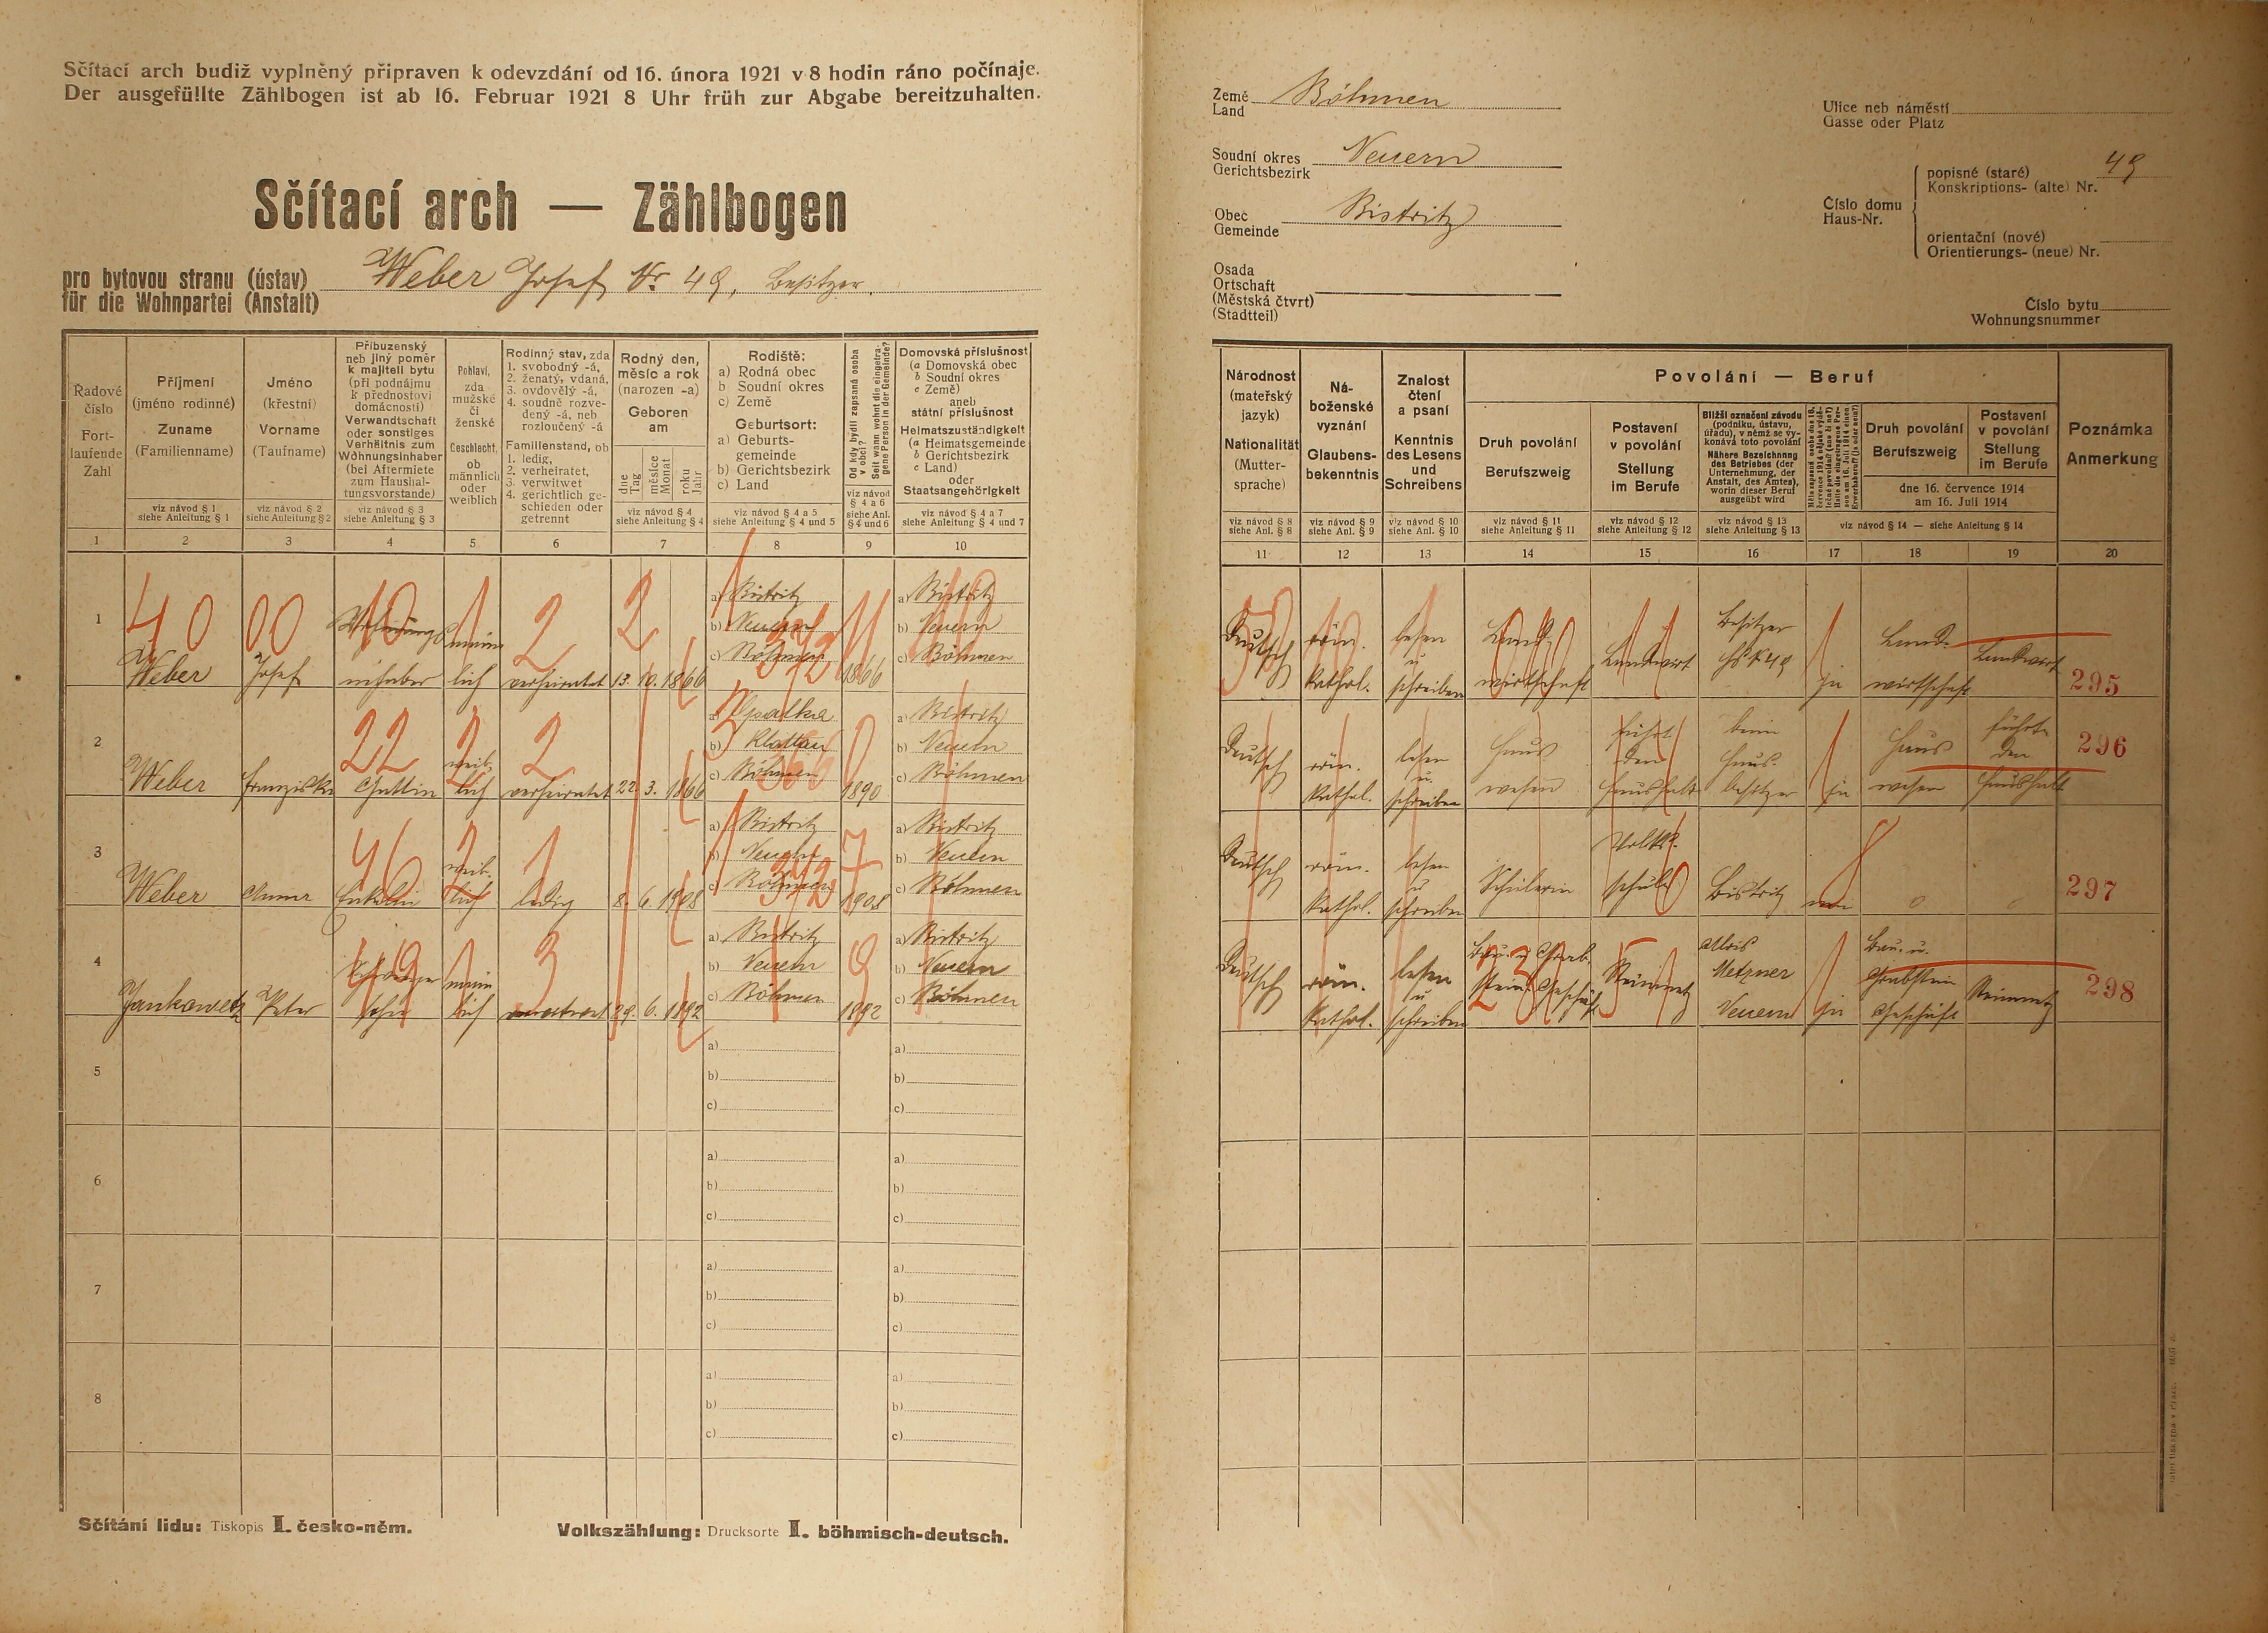 Sčítací arch budiž vyplněný připraven k odevzdání od 16. února 1921 v 8 hodin ráno počínaje.
Der ausgefüllte Zählbogen ist ab 16. Februar 1921 8 Uhr früh zur Abgabe bereitzuhalten.
Sčítací arch — Zählbogen
pro bytovou stranu (ústav)
für die Wohnpartei (Anstalt)
Weber Josef Nr. 49, Besitzer.
Řadové číslo
Fortlaufende Zahl
1
Příjmení
(jméno rodinné)
Zuname
(Familienname)
viz návod § 1
siehe Anleitung § 1
2
Jméno
(křestní)
Vorname
(Taufname)
viz návod § 2
siehe Anleitung § 2
3
Příbuzenský
neb jiný poměr
k majiteli bytu
(při podnájmu
k přednostovi
domácnosti)
Verwandtschaft
oder sonstiges
Verhältnis zum
Wohnungsinhaber
(bei Aftermiete
zum Haushal-
tungsvorstande)
viz návod § 3
siehe Anleitung § 3
4
Pohlaví,
zda
mužské
či
ženské
Geschlecht,
ob
männlich
oder
weiblich
5
Rodinný stav, zda
1. svobodný -á,
2. ženatý, vdaná,
3. ovdovělý -á,
4. soudně rozve-
dený -á, neb
rozloučený -á
Familienstand, ob
1. ledig,
2. verheiratet,
3. verwitwet
4. gerichtlich ge-
schieden oder
getrennt
6
Rodný den,
měsíc a rok
(narozen -a)
Geboren
am
dne Tag
měsíce Monat
roku Jahr
viz návod § 4
siehe Anleitung § 4
7
Rodiště:
a) Rodná obec
b) Soudní okres
c) Země
Geburtsort:
a) Geburts-
gemeinde
b) Gerichtsbezirk
c) Land
viz návod § 4 a 5
siehe Anleitung § 4 und 5
8
Od kdy bydlí zapsaná osoba v obci?
Seit wann wohnt die eingetragene Person in der Gemeinde?
viz návod
§ 4 a 6
siehe Anl.
§ 4 und 6
9
Domovská příslušnost
(a Domovská obec
b Soudní okres
c Země)
aneb
státní příslušnost
Heimatszuständigkeit
(a Heimatsgemeinde
b Gerichtsbezirk
c Land)
oder
Staatsangehörigkeit
viz návod § 4 a 7
siehe Anleitung § 4 und 7
10
1
Weber Josef inhaber männlich verheiratet 13. 10. 1866
a) Bistritz
b) Neuern
c) Böhmen
1866
a) Bistritz
b) Neuern
c) Böhmen
2
Weber Franziska Gattin weiblich verheiratet 22. 3. 1866
b) Klattau
c) Böhmen
1890
a) Bistritz
b) Neuern
c) Böhmen
3
Weber Anna Enkelin weiblich ledig 8. 6. 1908
a) Bistritz
b) Neuern
c) Böhmen
1908
a) Bistritz
b) Neuern
c) Böhmen
4
Jankowetz Peter männlich 29. 6. 1892
a) Bistritz
b) Neuern
c) Böhmen
1892
a) Bistritz
b) Neuern
c) Böhmen
5
a) b) c)
a) b) c)
6
a) b) c)
a) b) c)
7
a) b) c)
a) b) c)
8
a) b) c)
a) b) c)
Sčítání lidu: Tiskopis I. česko-něm.
Volkszählung: Drucksorte I. böhmisch-deutsch.
Země
Land
Böhmen
Soudní okres
Gerichtsbezirk
Neuern
Obec
Gemeinde
Bistritz
Osada
Ortschaft
(Městská čtvrt)
(Stadtteil)
Ulice neb náměstí
Gasse oder Platz
Číslo domu
Haus-Nr.
popisné (staré)
Konskriptions- (alte) Nr.
49
orientační (nové)
Orientierungs- (neue) Nr.
Číslo bytu
Wohnungsnummer
Národnost
(mateřský
jazyk)
Nationalität
(Mutter-
sprache)
viz návod § 8
siehe Anl. § 8
11
Ná-
boženské
vyznání
Glaubens-
bekenntnis
viz návod § 9
siehe Anl. § 9
12
Znalost
čtení
a psaní
Kenntnis
des Lesens
und
Schreibens
viz návod § 10
siehe Anl. § 10
13
Povolání — Beruf
Druh povolání
Berufszweig
viz návod § 11
siehe Anleitung § 11
14
Postavení
v povolání
Stellung
im Berufe
viz návod § 12
siehe Anleitung § 12
15
Bližší označení závodu
(podniku, ústavu,
úřadu), v němž se vy-
konává toto povolání
Nähere Bezeichnung
des Betriebes (der
Unternehmung, der
Anstalt, des Amtes),
worin dieser Beruf
ausgeübt wird
viz návod § 13
siehe Anleitung § 13
16
17
Druh povolání
Berufszweig
18
Postavení
v povolání
Stellung
im Berufe
19
dne 16. července 1914
am 16. Juli 1914
viz návod § 14 — siehe Anleitung § 14
Poznámka
Anmerkung
20
Deutsch röm. kathol. lesen u schreiben Landwirtschaft Landwirt Besitzer ja Landwirtschaft Landwirt 295
Deutsch röm. kathol. lesen u. schreiben Hauswesen führt den Haushalt beim Hausbesitzer ja Hauswesen führte den Haushalt 296
Deutsch röm. kathol. lesen u schreiben Schülerin Bistritz nein 0 0 297
Deutsch röm. kathol. lesen u schreiben Steinmetz Alois Metzner Neuern ja Bau. u. Grabstein Geschäft Steinmetz 298